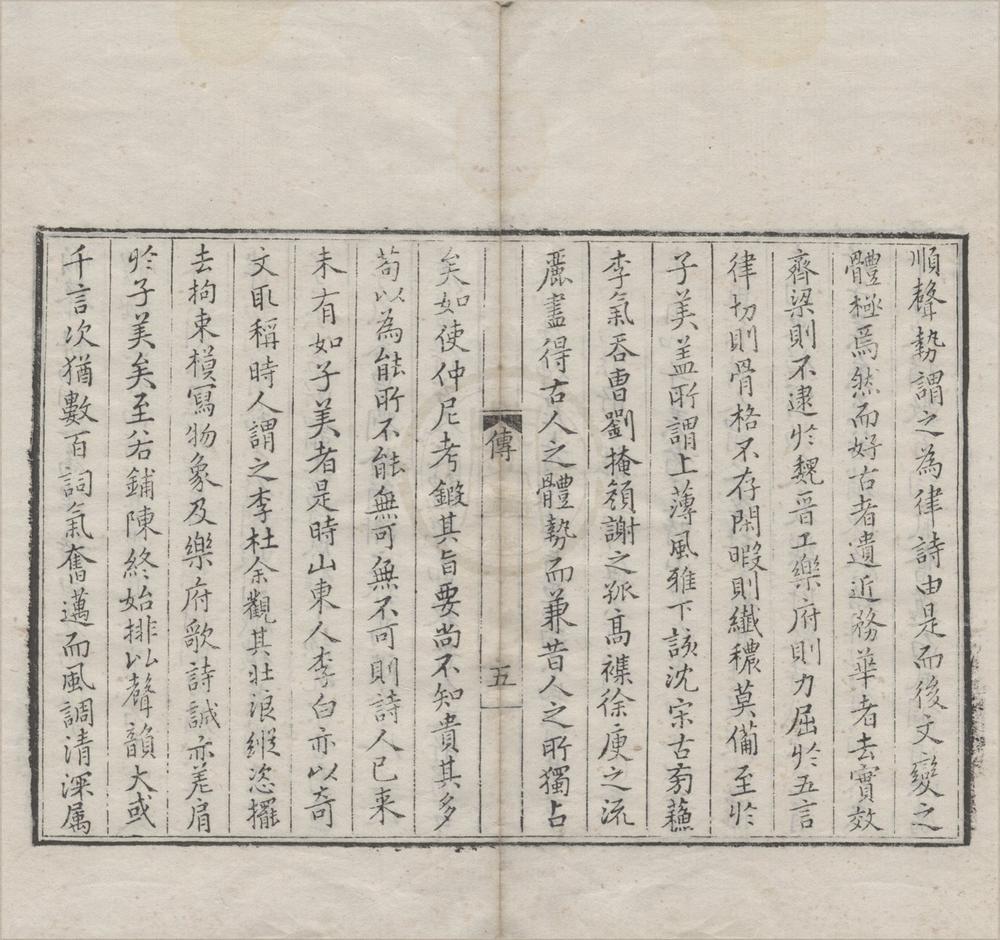 順聲勢謂之為律詩由是而後文變之
體極焉然而好古者遺近務華者去實效
齊梁則不逮於魏晉工樂府則力屈於五言
律切則骨格不存閑暇則纖穠莫備至於
子美盖所謂上薄風雅下該沈宋古旁蘇
李氣吞曹劉掩顏謝之孤高襍徐庾之流
麗盡得古人之體勢而兼昔人之所獨占
傳
五
矣如使仲尼考鍛其旨要尚不知貴其多
苟以為能所不能無可無不可則詩人已來
未有如子美者是時山東人李白亦以奇
文取稱時人謂之李杜余觀其壯浪縱恣擺
去拘束模寫物象及樂府歌詩誠亦差肩
於子美矣至若鋪陳終始排比聲韻大或
千言次猶數百詞氣奮邁而風調清深属